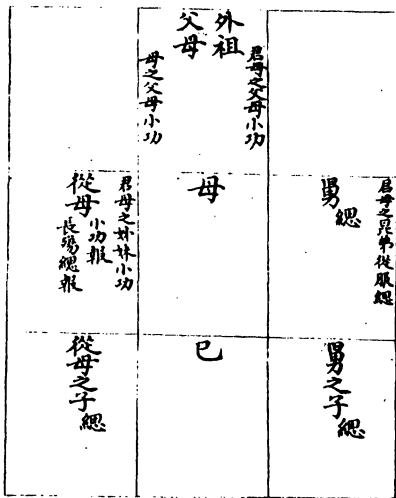 外祖
父母
君母之父母小功
母之父母小功
君母之昆弟從服緦
舅
緦
母
君母之姊妹小功
從母
小功報
長殤緦報
舅之子
緦
己
從母之子
緦